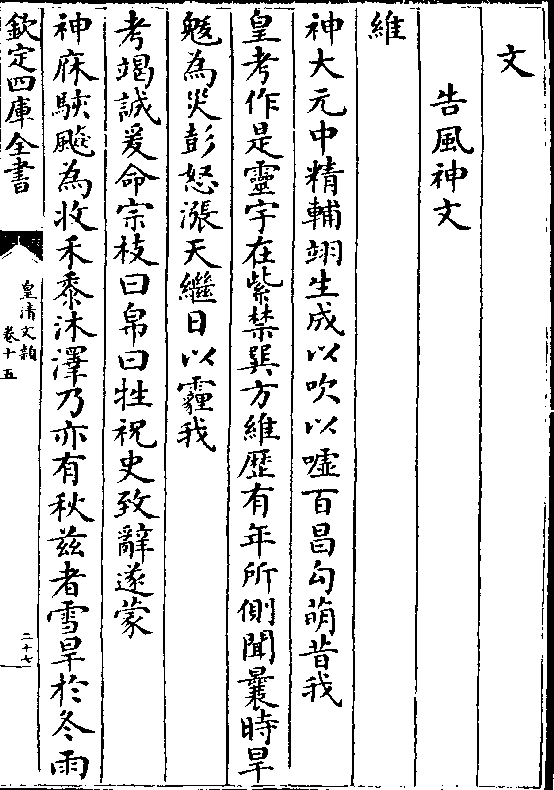 文
告風神文
維
神大元中精輔翊生成以吹以噓百昌勾萌昔我
皇考作是靈宇在紫禁巽方維歷有年所側聞曩時旱
魃為災彭怒漲天繼日以霾我
考竭誠爰命宗枝曰帛曰牲祝史致辭遂蒙
神庥駛飈為收禾黍沐澤乃亦有秋兹者雪旱於冬雨
欽定四庫全書
皇清文穎
卷十五
二十七